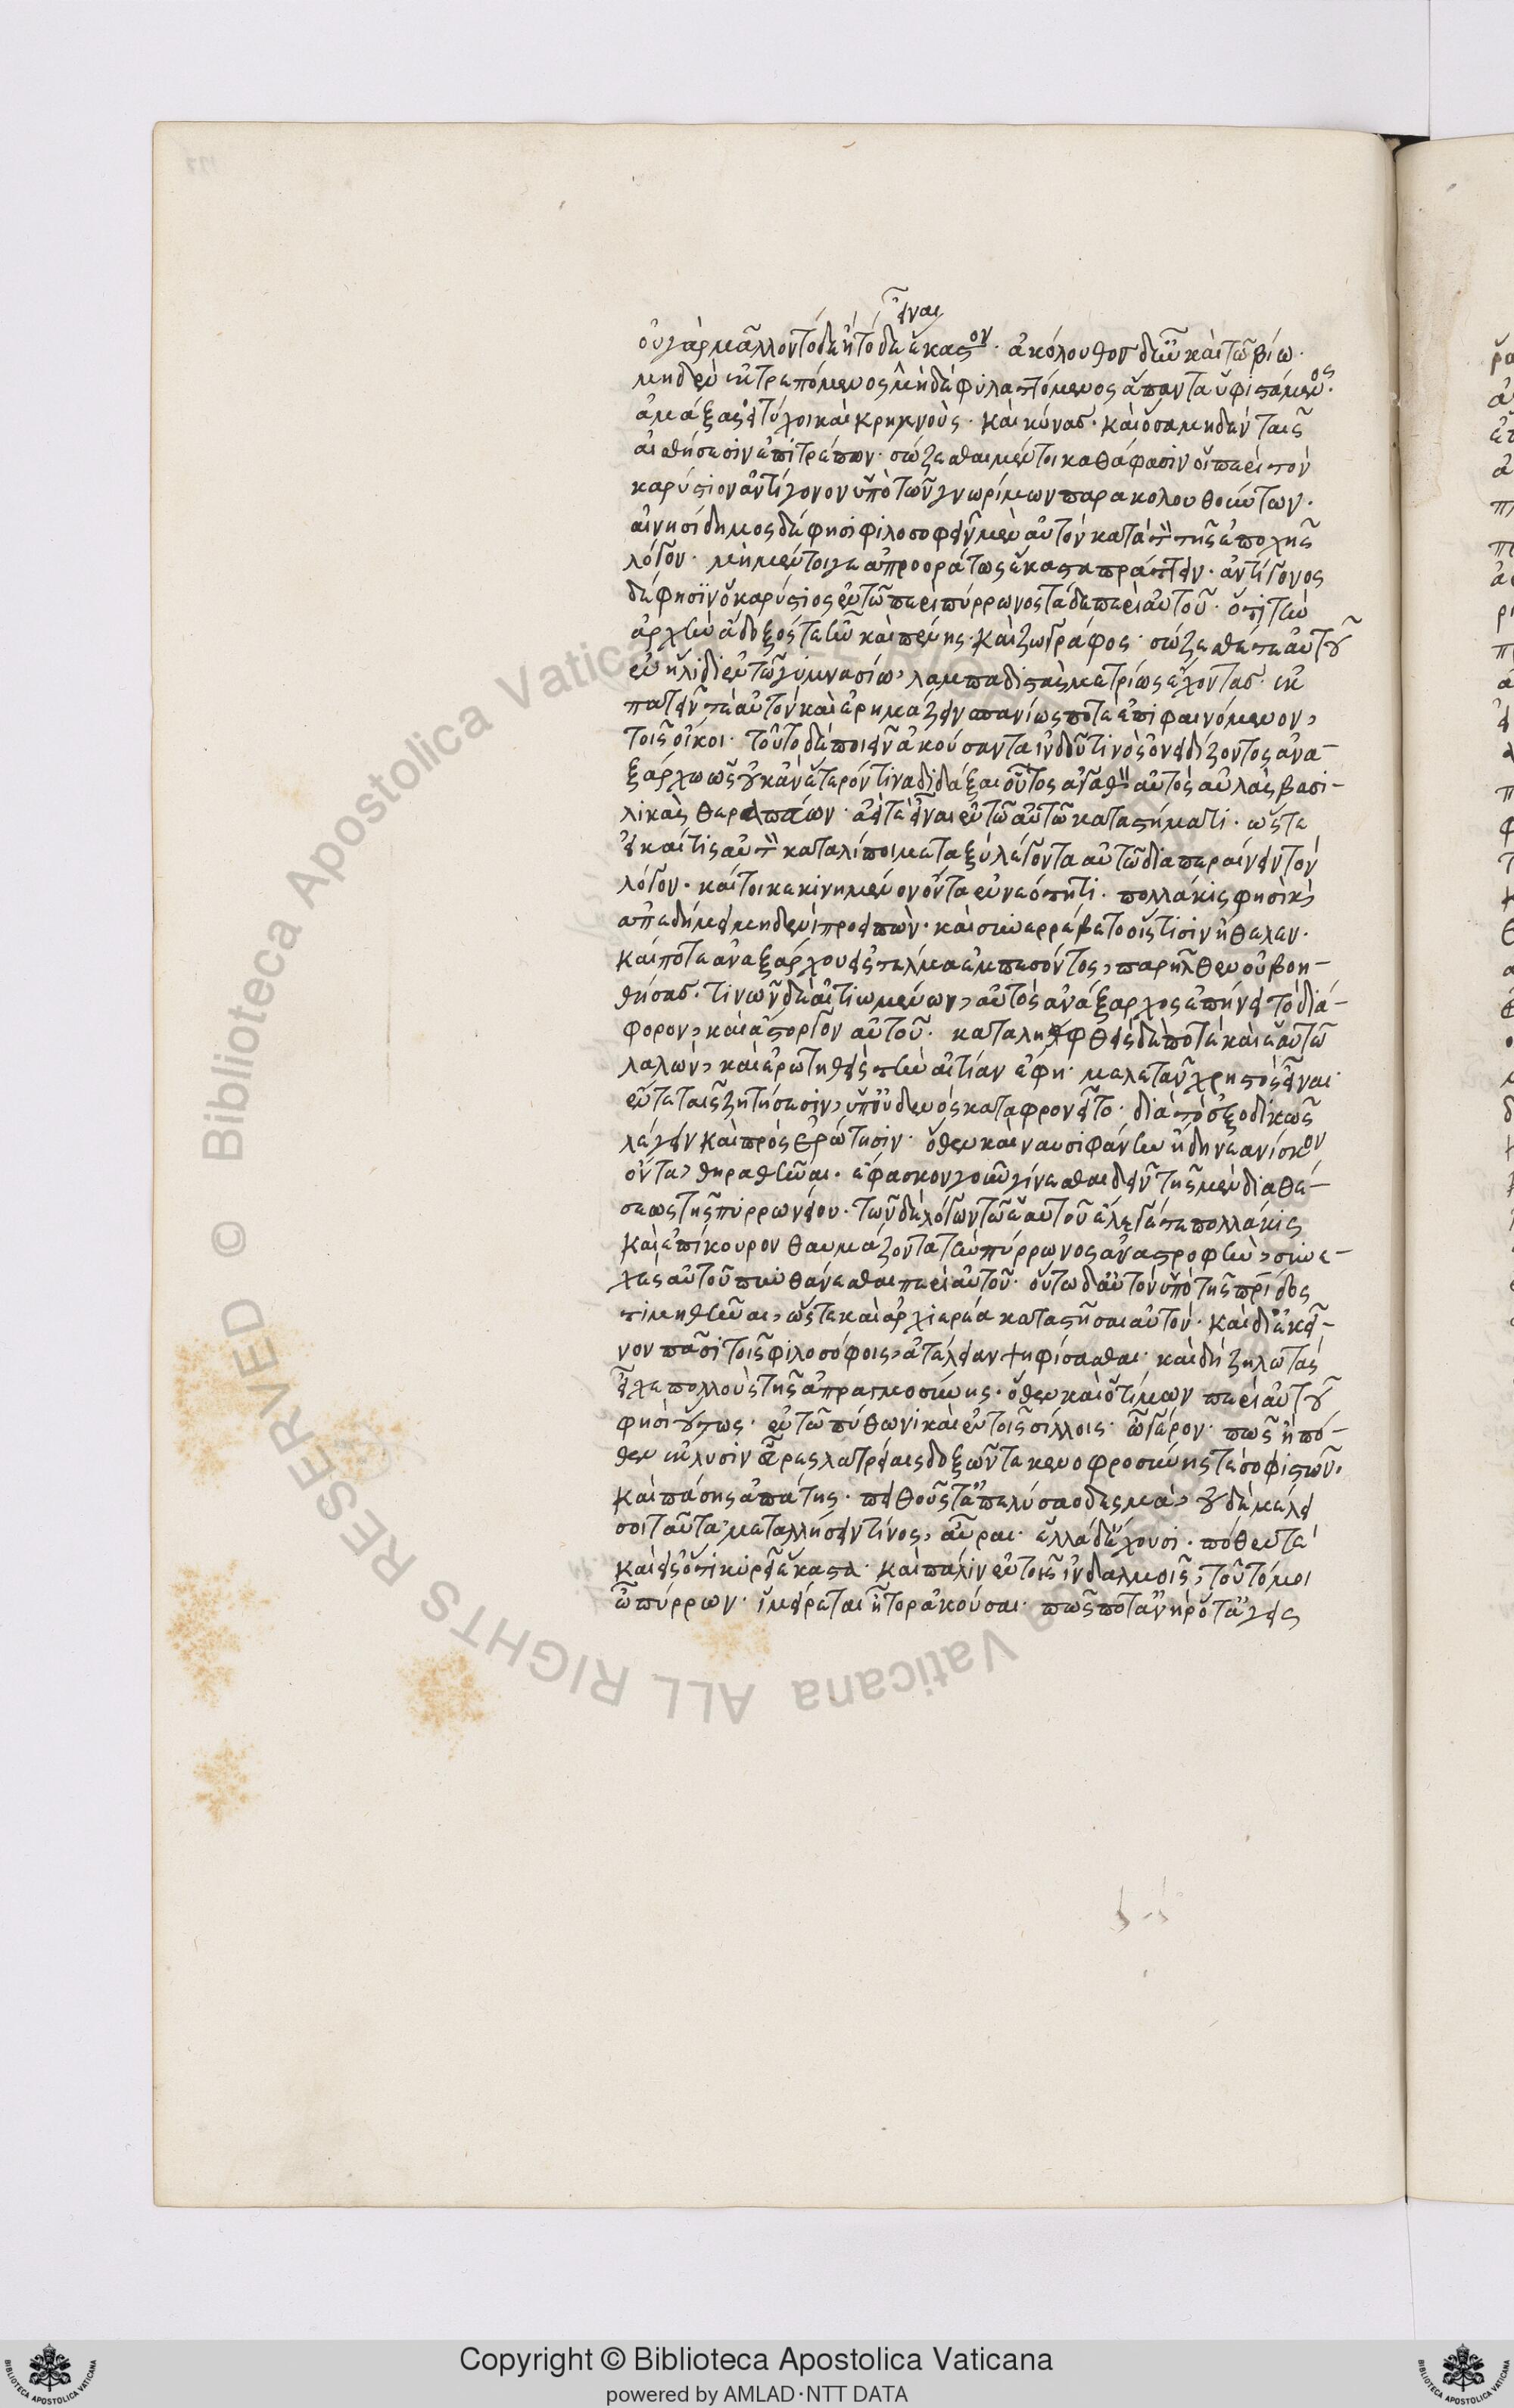 εἶναι
οὐ γὰρ μᾶλλον τόδε ἢ τόδε ἕκαστον. ἀκόλουθος δ' ἦν καὶ τῶ βίω.
μηδὲν ἐκτρεπόμενος μηδὲ φυλαττόμενος ἅπαντα ὑφιστάμενος.
ἁμάξας εἰ τύχοι καὶ κρημνοὺς. καὶ κύνας. καὶ ὅσα μηδὲν ταῖς
αἰσθήσεσιν ἐπιτρέπων. σώζεσθαι μέντοι καθά φασιν οἱ περὶ τὸν
καρύστιον ἀντίγονον ὑπὸ τῶν γνωρίμων παρακολουθούντων.
αἰνησίδημος δέ φησι φιλοσοφεῖν μὲν αὐτὸν κατὰ τὸν τῆς ἐποχῆς
λόγον. μὴ μέντοιγε ἀπροοράτως ἕκαστα πράττειν. ἀντίγονος
δέ φησὶν ὁ καρύστιος ἐν τῶ περὶ πύρρωνος τάδε περὶ αὐτοῦ. ὅτι τὴν
ἀρχὴν ἄδοξός τε ἦν καὶ πένης. καὶ ζωγράφος. σώζεσθαί τε αὐτοῦ
ἐν ἤλιδι ἐν τῶ γυμνασίω, λαμπαδιστὰς μετρίως ἔχοντας. ἐκ
πατεῖν τὲ αὐτὸν καὶ ἐρημάζειν σπανίως ποτὲ ἐπιφαινόμενον,
τοῖς οἴκοι. τοῦτο δὲ ποιεῖν ἀκούσαντα ἰνδοῦ τινὸς ὀνειδίζοντος ἀνα-
ξάρχω ὡς οὐκ ἂν ἕτερόν τινα διδάξαι οὗτος ἀγαθὸν αὐτὸς αὐλὰς βασι-
λικὰς θεραπεύων. ἀεί τε εἶναι ἐν τῶ αὐτῶ καταστήματι. ὥστε
εἰ καί τις αὐτὸν καταλίποι μεταξὺ λέγοντα αὐτῶ διαπεραίνειν τὸν
λόγον. καίτοι κεκινημένον ὄντα ἐν νεότητι. πολλάκις φησὶ καὶ
ἀπεδήμει μηδενὶ προειπὼν. καὶ συνερρέμβετο οἷς τισὶν ἤθελεν.
καί ποτε ἀναξάρχου εἰς τέλμα ἐμπεσόντος, παρῆλθεν οὐ βοη-
θήσας. τινῶν δὲ αἰτιωμένων, αὐτὸς ἀνάξαρχος ἐπήνει τὸ διά-
φορον, καὶ ἄστοργον αὐτοῦ. καταληφθεὶς δέ ποτε καὶ ἑαυτῶ
λαλῶν, καὶ ἐρωτηθεὶς τὴν αἰτίαν ἔφη. μελετᾶν χρηστὸς εἶναι.
ἔν τε ταῖς ζητήσεσιν, ὑπ' οὐδενὸς κατεφρονεῖτο. διὰ τὸ ἐξοδικῶς
λέγειν καὶ πρὸς ἐρώτησιν. ὅθεν καὶ ναυσιφάνην ἤδη νεανίσκον
ὄντα, θηραθῆναι. ἔφασκον γοῦν γίνεσθαι δεῖν τῆς μὲν διαθέ-
σεως τῆς πυρρωνείου. τῶν δὲ λόγων τῶν ἑαυτοῦ ἔλεγέ τε πολλάκις
καὶ ἐπίκουρον θαυμάζοντα τὴν πύρρωνος ἀναστροφὴν, συνε-
χὲς αὐτοῦ πυνθάνεσθαι περὶ αὐτοῦ. οὕτω δ' αὐτὸν ὑπὸ τῆς πρίδος
τιμηθῆναι, ὥστε καὶ ἀρχιερέα καταστῆσαι αὐτόν. καὶ δι' ἐκεῖ-
νον πᾶσι τοῖς φιλοσόφοις, ἀτέλειαν ψηφίσασθαι. καὶ δὴ ζηλωτὰς
εἶχε πολλοὺς τῆς ἀπραγμοσύνης. ὅθεν καὶ ὁ τίμων περὶ αὐτοῦ
φησὶ οὕτως. ἐν τῶ πύθωνι καὶ ἐν τοῖς σίλλοις. ὦ γέρον. πῶς ἢ πό-
θεν ἔκλυσιν εὗρες λατρείαις δοξῶν τε κενοφροσύνης τε σοφιστῶν.
καὶ πάσης ἀπάτης. πειθοῦς τ' ἀπελύσαο δεσμὰ, οὐδὲ μέλει
σοι ταῦτα μεταλλήσειν τίνος, αὖραι. ἑλλάδ' ἔχουσι. πόθεν τε
καὶ εἰς ὅτι κύρει ἕκαστα. καὶ πάλιν ἐν τοῖς ἰνδαλμοῖς, τοῦτό μοι
ὦ πύρρων. ἱμείρεται ἦτορ ἀκοῦσαι. πῶς ποτ' ἀνὴρ ὅτ' ἄγεις